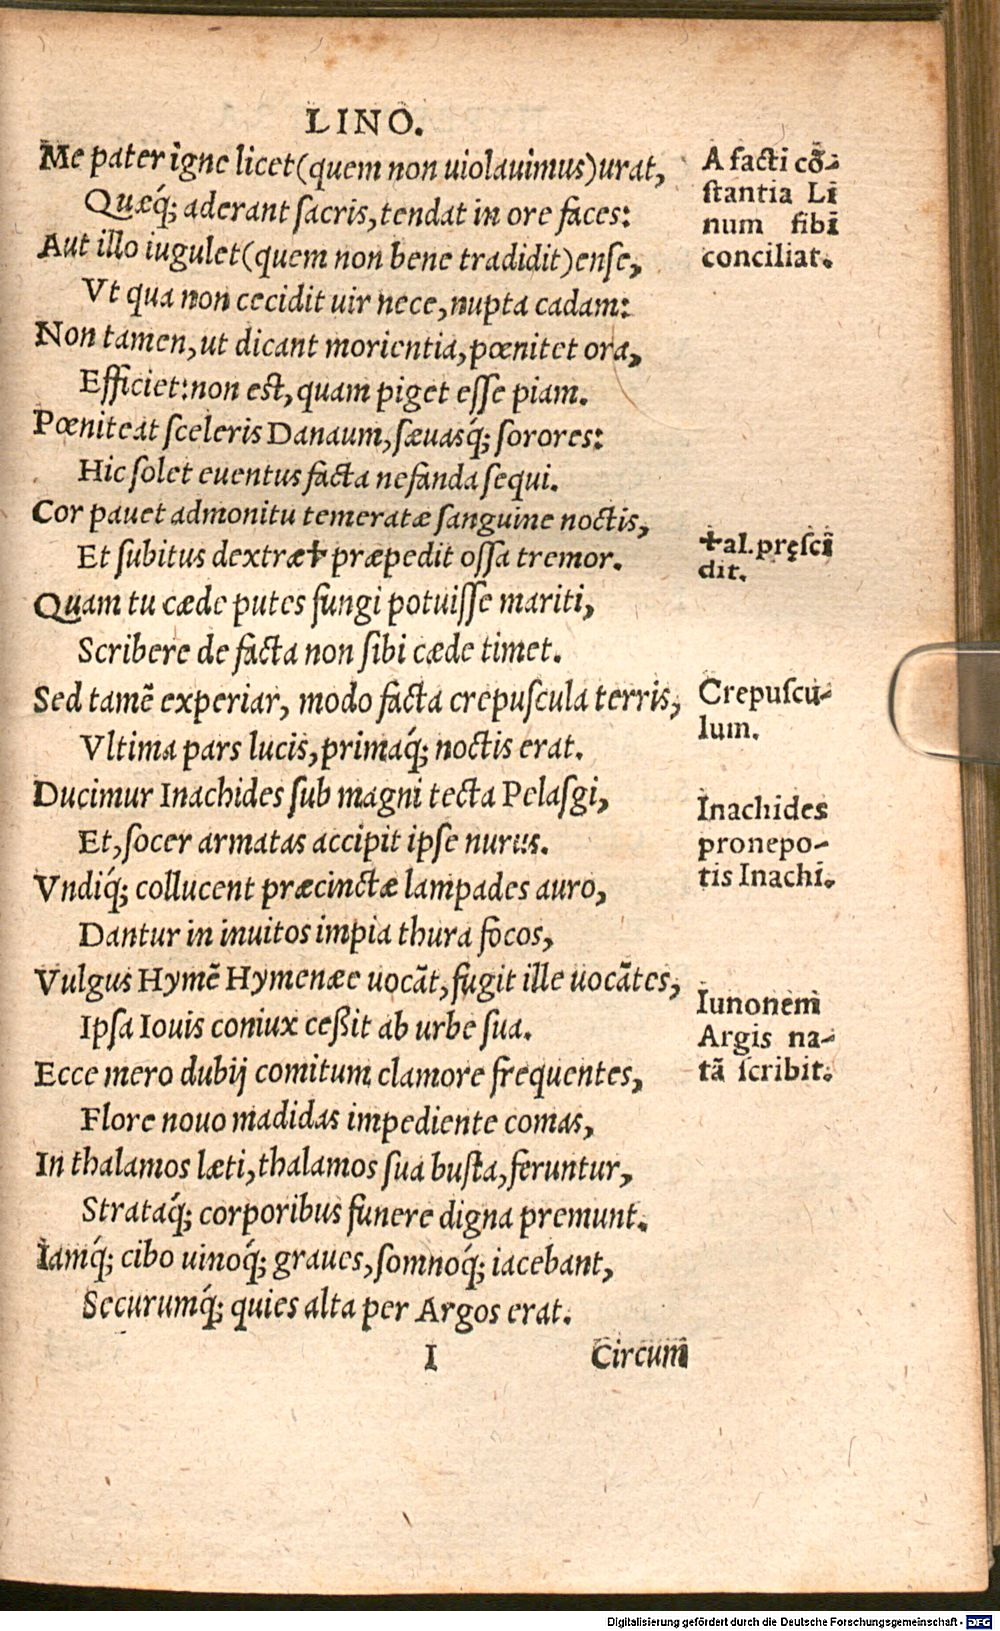 LINO.
Me pater igne licet (quem non uiolauimus) urat,
Quæq́; aderant sacris, tendat in ore faces:
Aut illo iugulet (quem non bene tradidit) ense,
Vt qua non cecidit uir nece, nupta cadam:
Non tamen, ut dicant morientia, pœnitet ora,
Efficiet: non est, quam piget esse piam.
Pœniteat sceleris Danaum, sæuasq́; sorores:
Hic solet euentus facta nefanda sequi.
Cor pauet admonitu temeratæ sanguine noctis,
Et subitus dextræ✝ præpedit ossa tremor.
Quam tu cæde putes fungi potuisse mariti,
Scribere de facta non sibi cæde timet.
Sed tamẽ experiar, modo facta crepuscula terris,
Vltima pars lucis, primaq́; noctis erat.
Ducimur Inachides sub magni tecta Pelasgi,
Et, socer armatas accipit ipse nurus.
Vndiq́; collucent præcinctæ lampades auro,
Dantur in inuitos impia thura focos,
Vulgus Hymẽ Hymenæe uocãt, fugit ille uocãtes,
Ipsa Iouis coniux ceßit ab urbe sua.
Ecce mero dubij comitum clamore frequentes,
Flore nouo madidas impediente comas,
In thalamos læti, thalamos sua busta, feruntur,
Strataq́; corporibus funere digna premunt.
Iamq́; cibo uinoq́; graues, somnoq́; iacebant,
Securumq́; quies alta per Argos erat.
I Circum
A facti cõ-
stantia Li
num sibi
conciliat.
✝al. pręsci
dit.
Crepuscu-
lum.
Inachides
pronepo-
tis Inachi.
Iunonem
Argis na-
tã scribit.
Digitalisierung gefördert durch die Deutsche Forschungsgemeinschaft - DFG